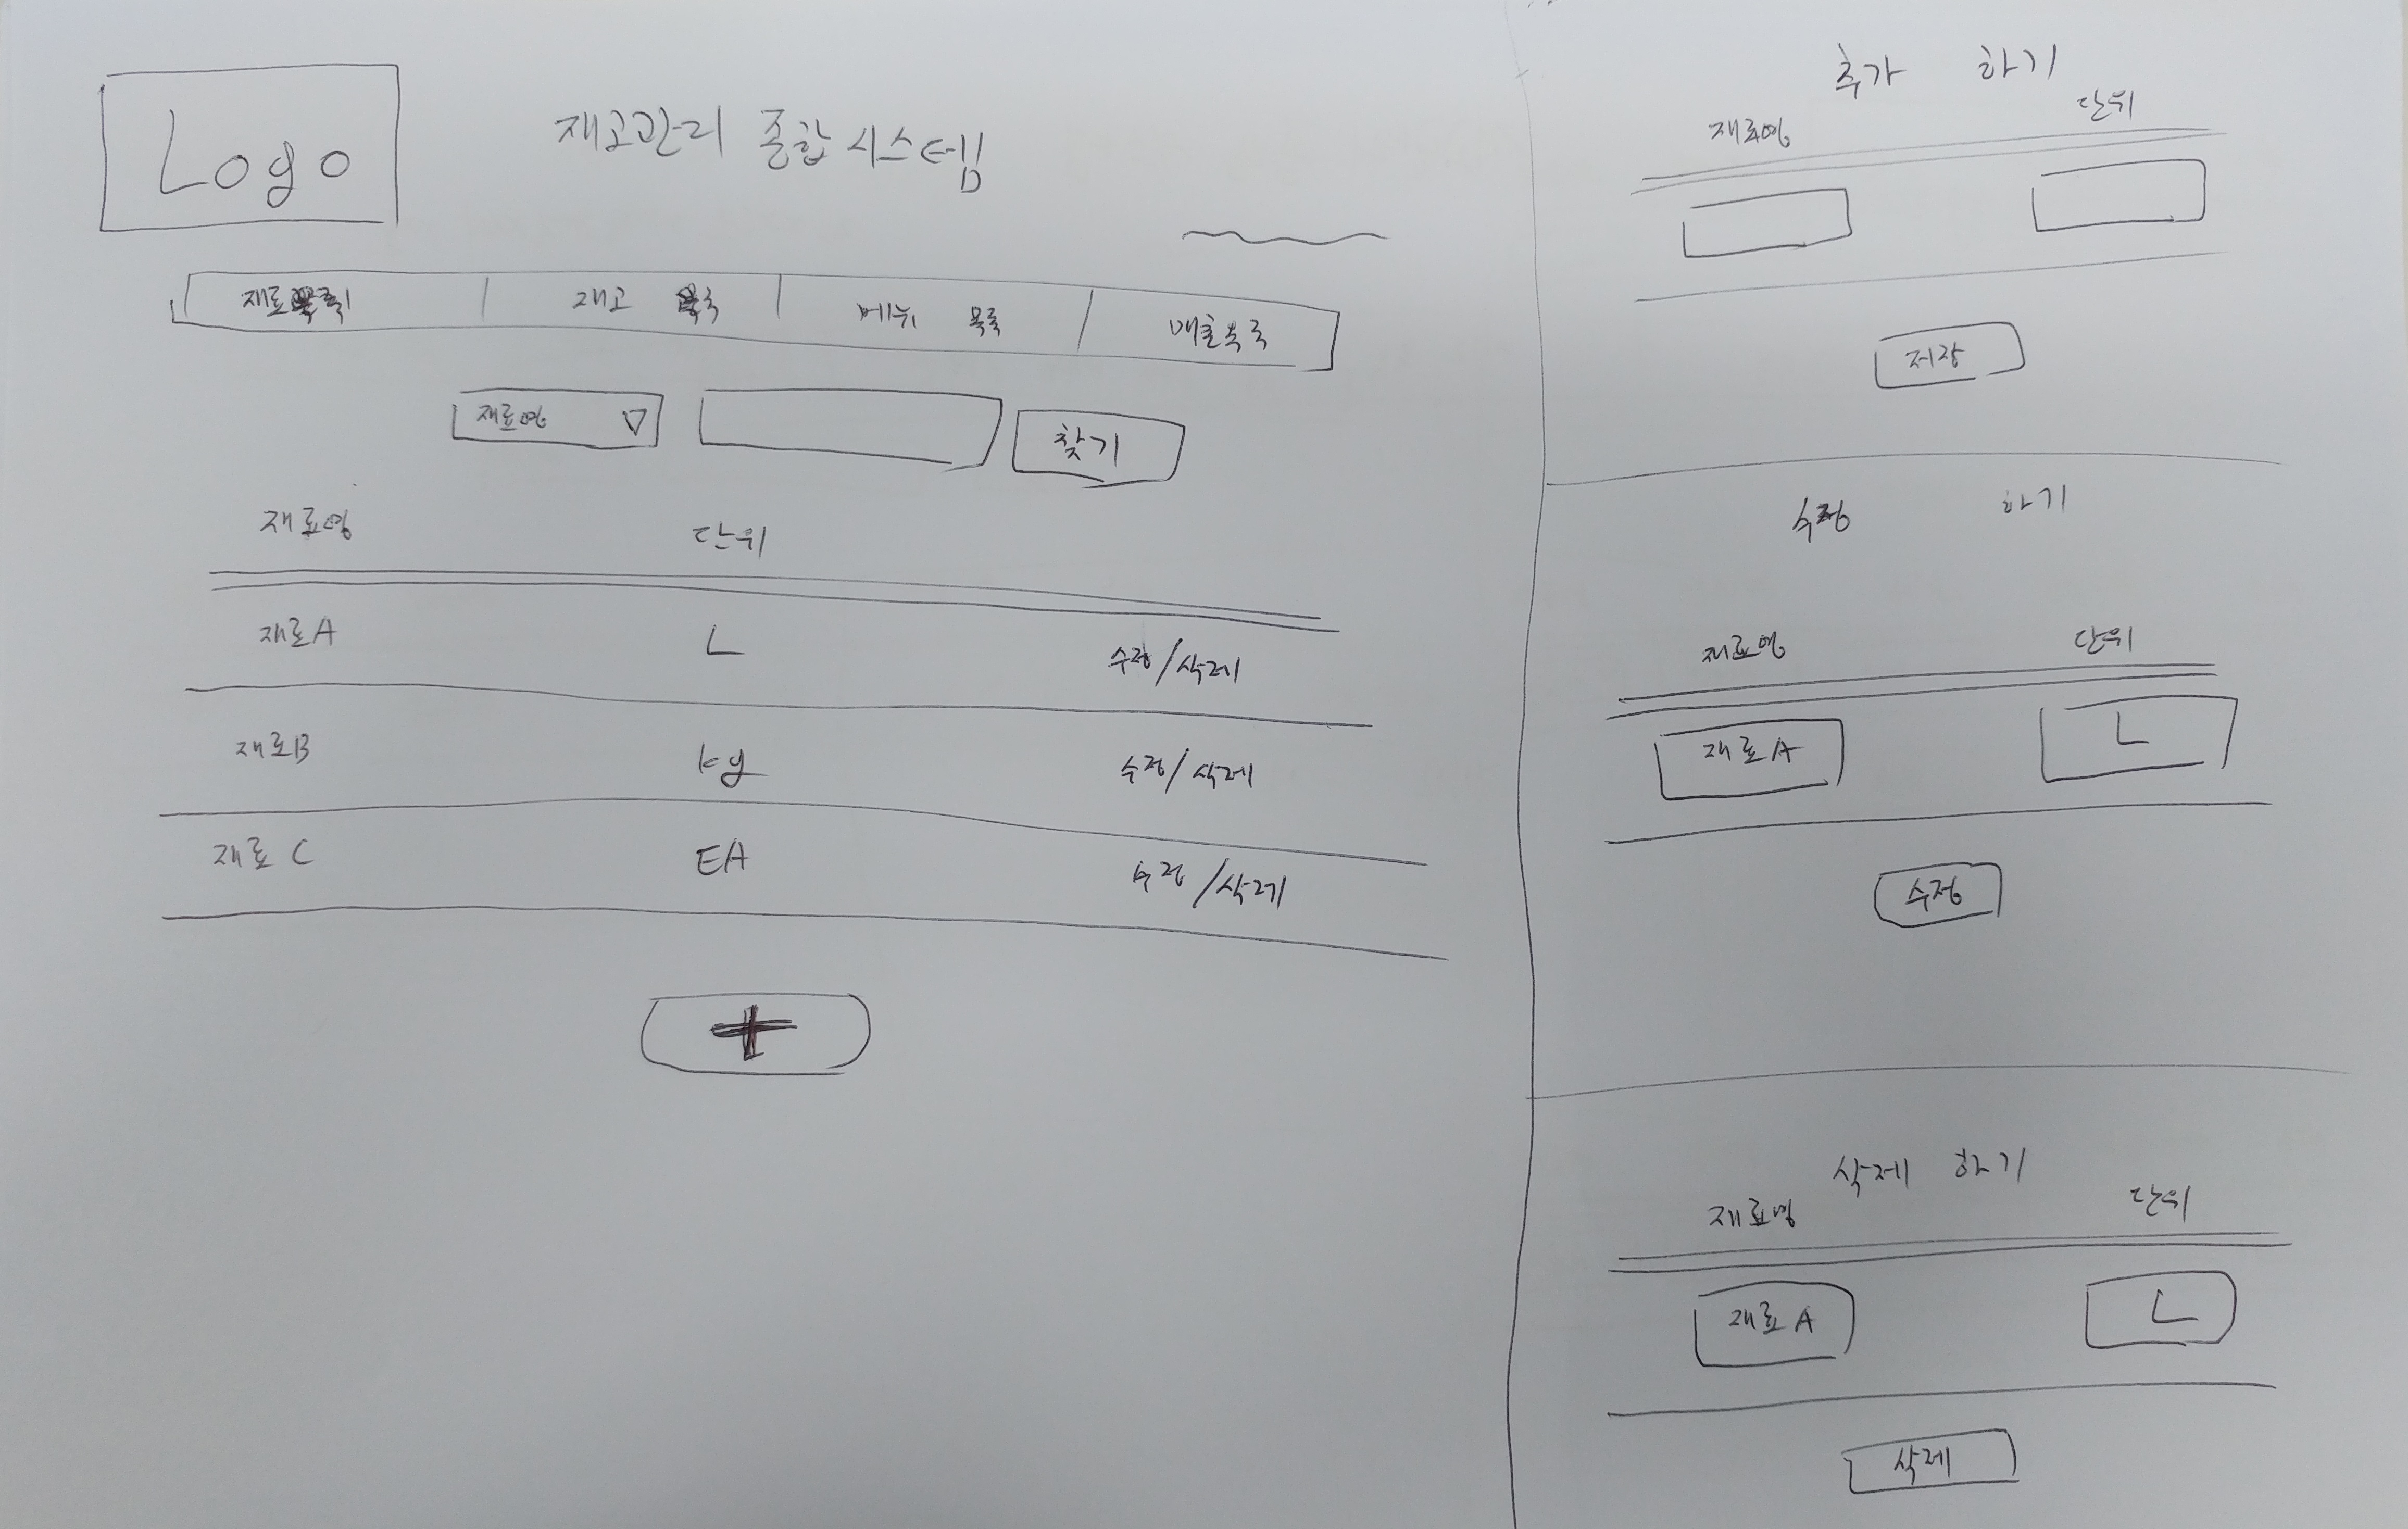 Logo
재고관리 종합시스템
재료목록 재고 목록 메뉴 목록 매출목록
재료명 찾기
재료명 단위
재료A L 수정/삭제
재료B kg 수정/삭제
재료 C EA 수정/삭제
+
추가 하기
재료명 단위
저장
수정 하기
재료명 단위
재료A L
수정
삭제 하기
재료명 단위
재료A L
삭제